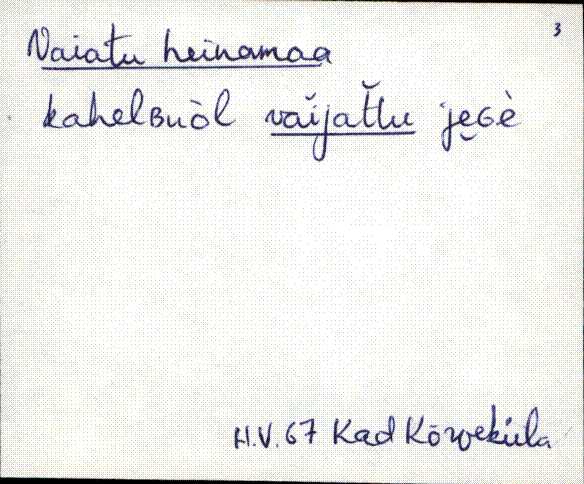 3
Vaiatu heinamaa
kahelʙuòl vaĭjat̆t̆u je̮ɢè
H.V. 67 Kad Kõrveküla